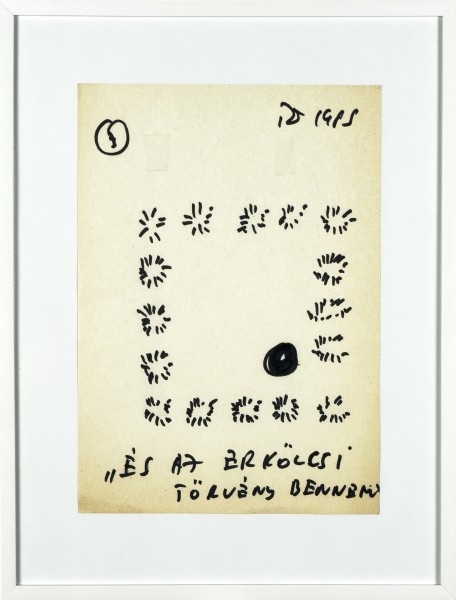 1985
„ÉS AZ ERKÖLCSI
TÖRVÉNY BENNEM